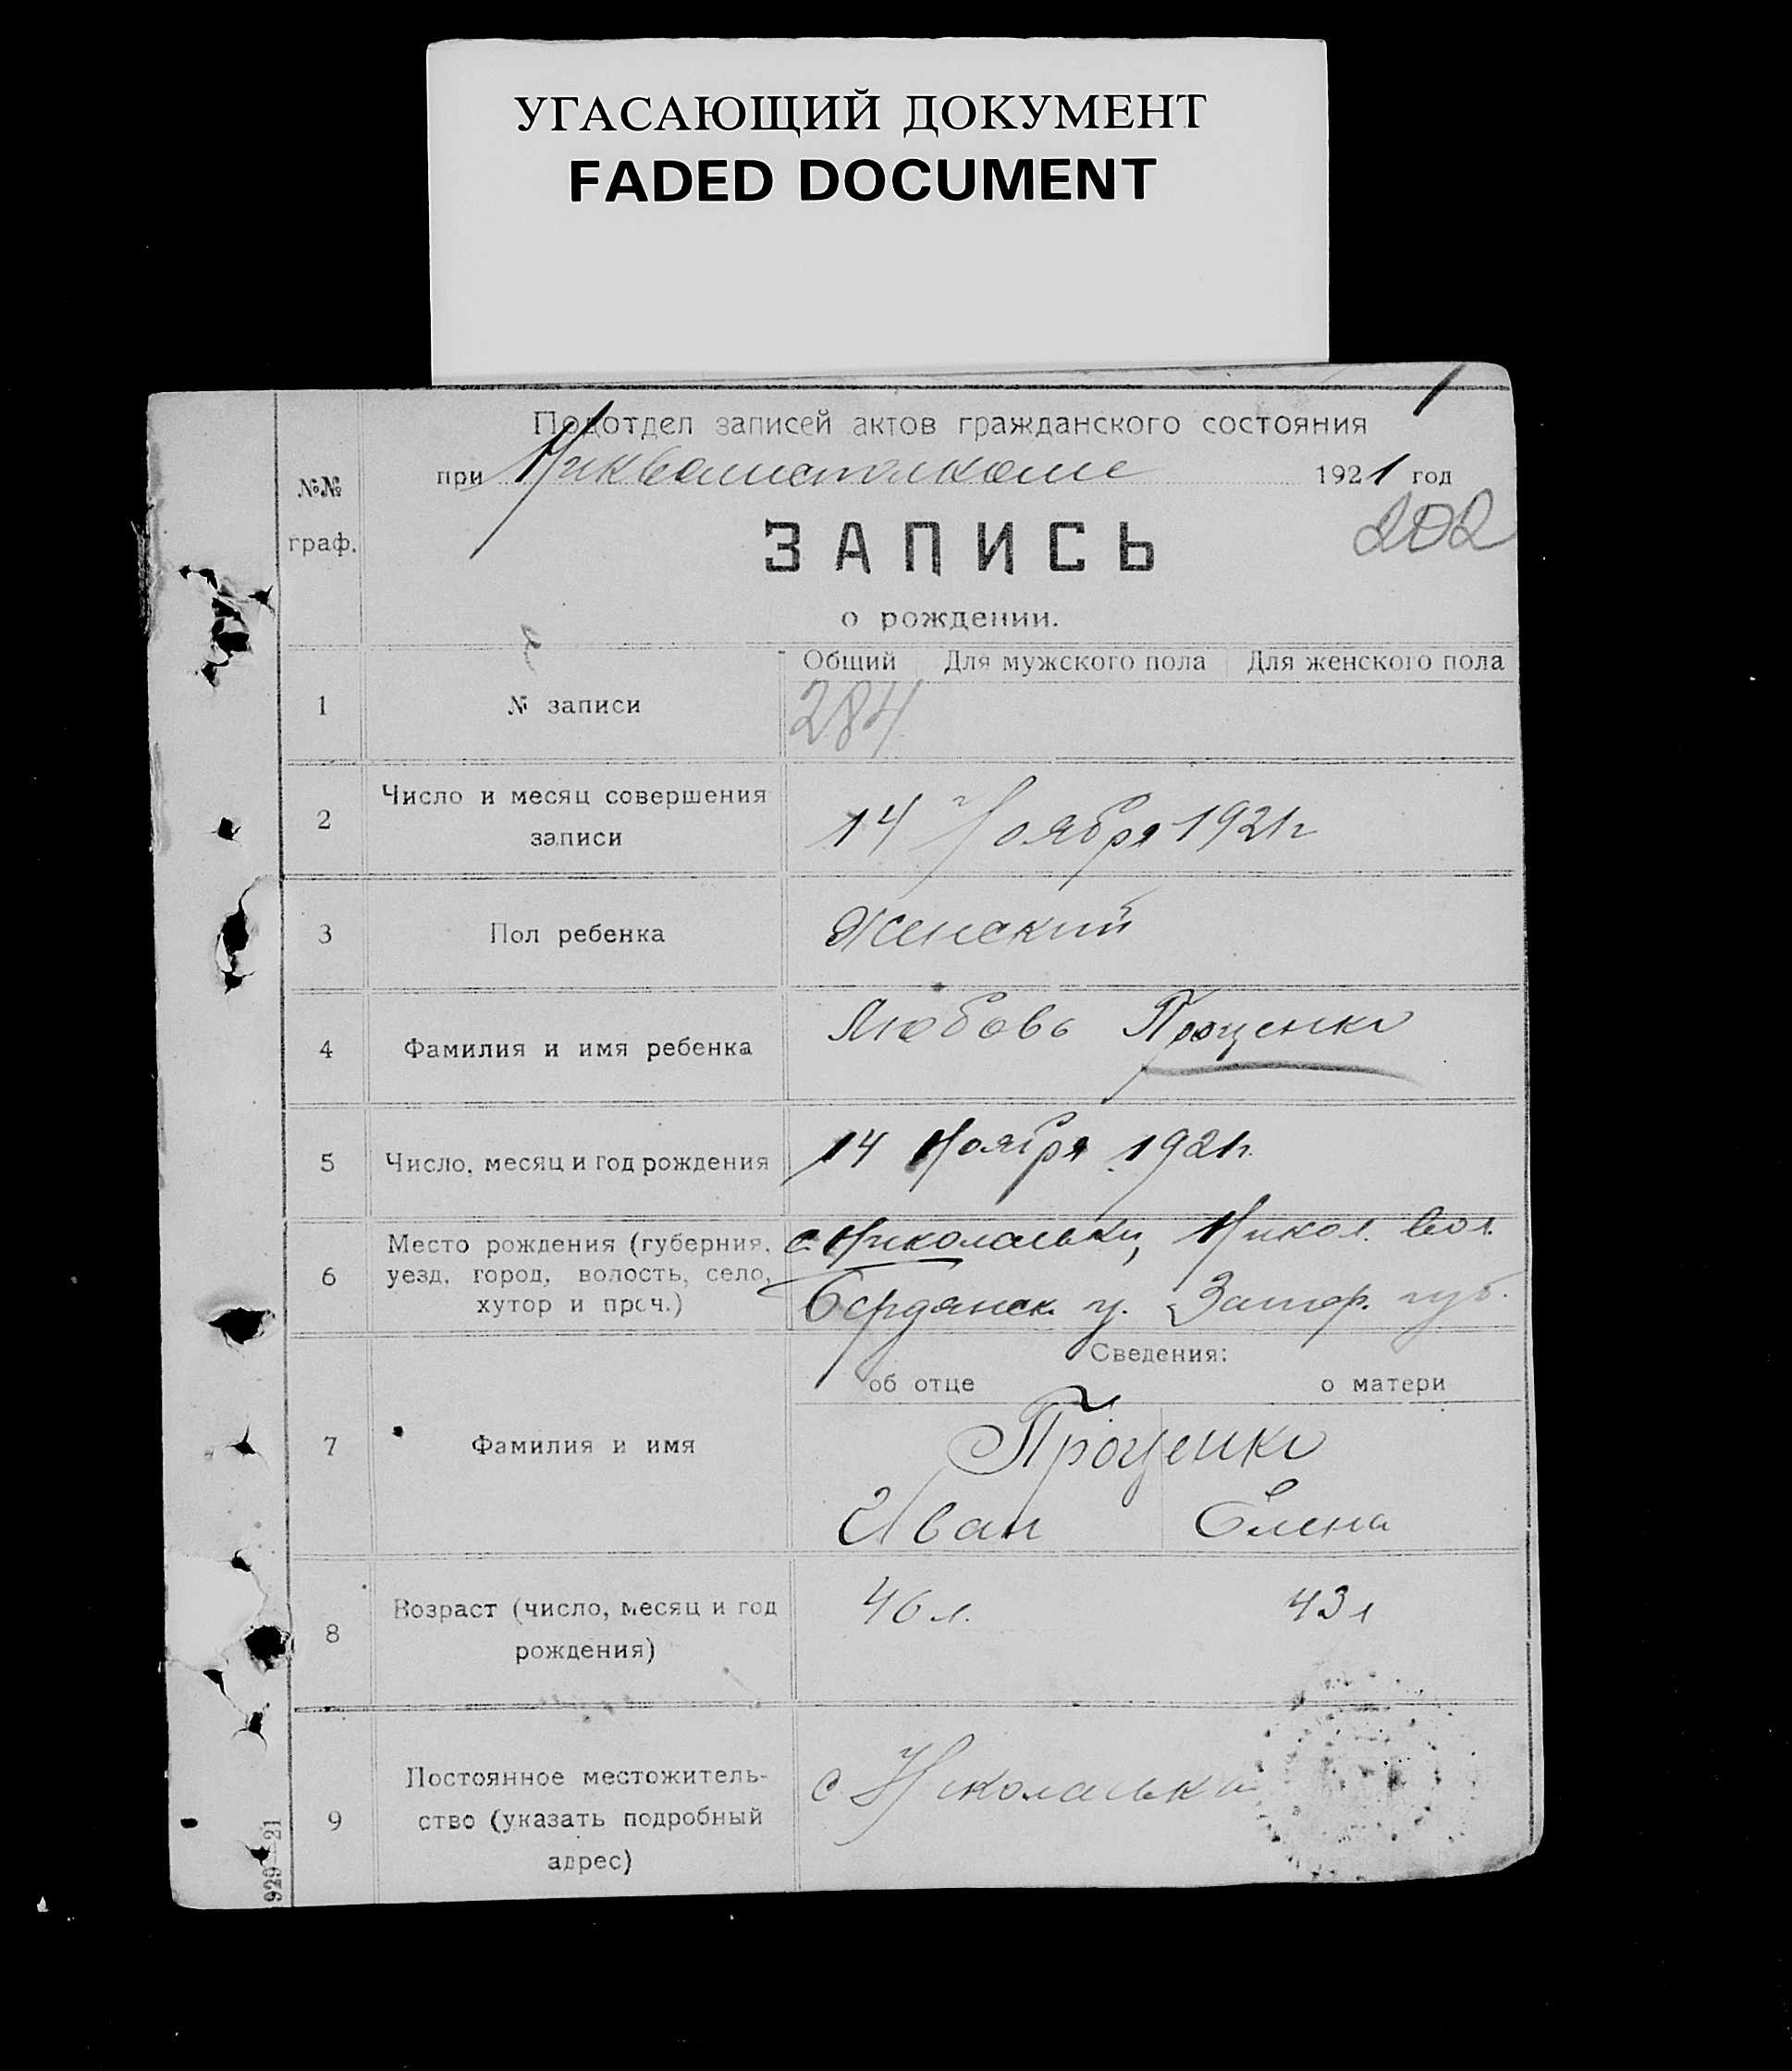 УГАСАЮЩИЙ ДОКУМЕНТ
FADED DOCUMENT
Подотдел записей актов гражданского состояния
при 1921 год
№№
граф.
202
ЗАПИСЬ
о рождении.
Общий Для мужского пола Для женского пола
1 № записи 284
2 Число и месяц совершения
записи
14 Ноября 1921г
3 Пол ребенка Женский
4 Фамилия и имя ребенка Любовь Проценко
5 Число, месяц и год рождения 14 Ноября 1921г.
6 Место рождения (губерния,
уезд, город, волость, село,
хутор и проч.)
с. Николаевки, Никол. вол.
Бердянск. у. Запор. губ.
Сведения:
об отце о матери
7 Фамилия и имя
Проценко
Иван Елена
8 Возраст (число, месяц и год
рождения)
46 л. 43 л
9 Постоянное местожитель-
ство (указать подробный
адрес)
с Николаевка
929—21